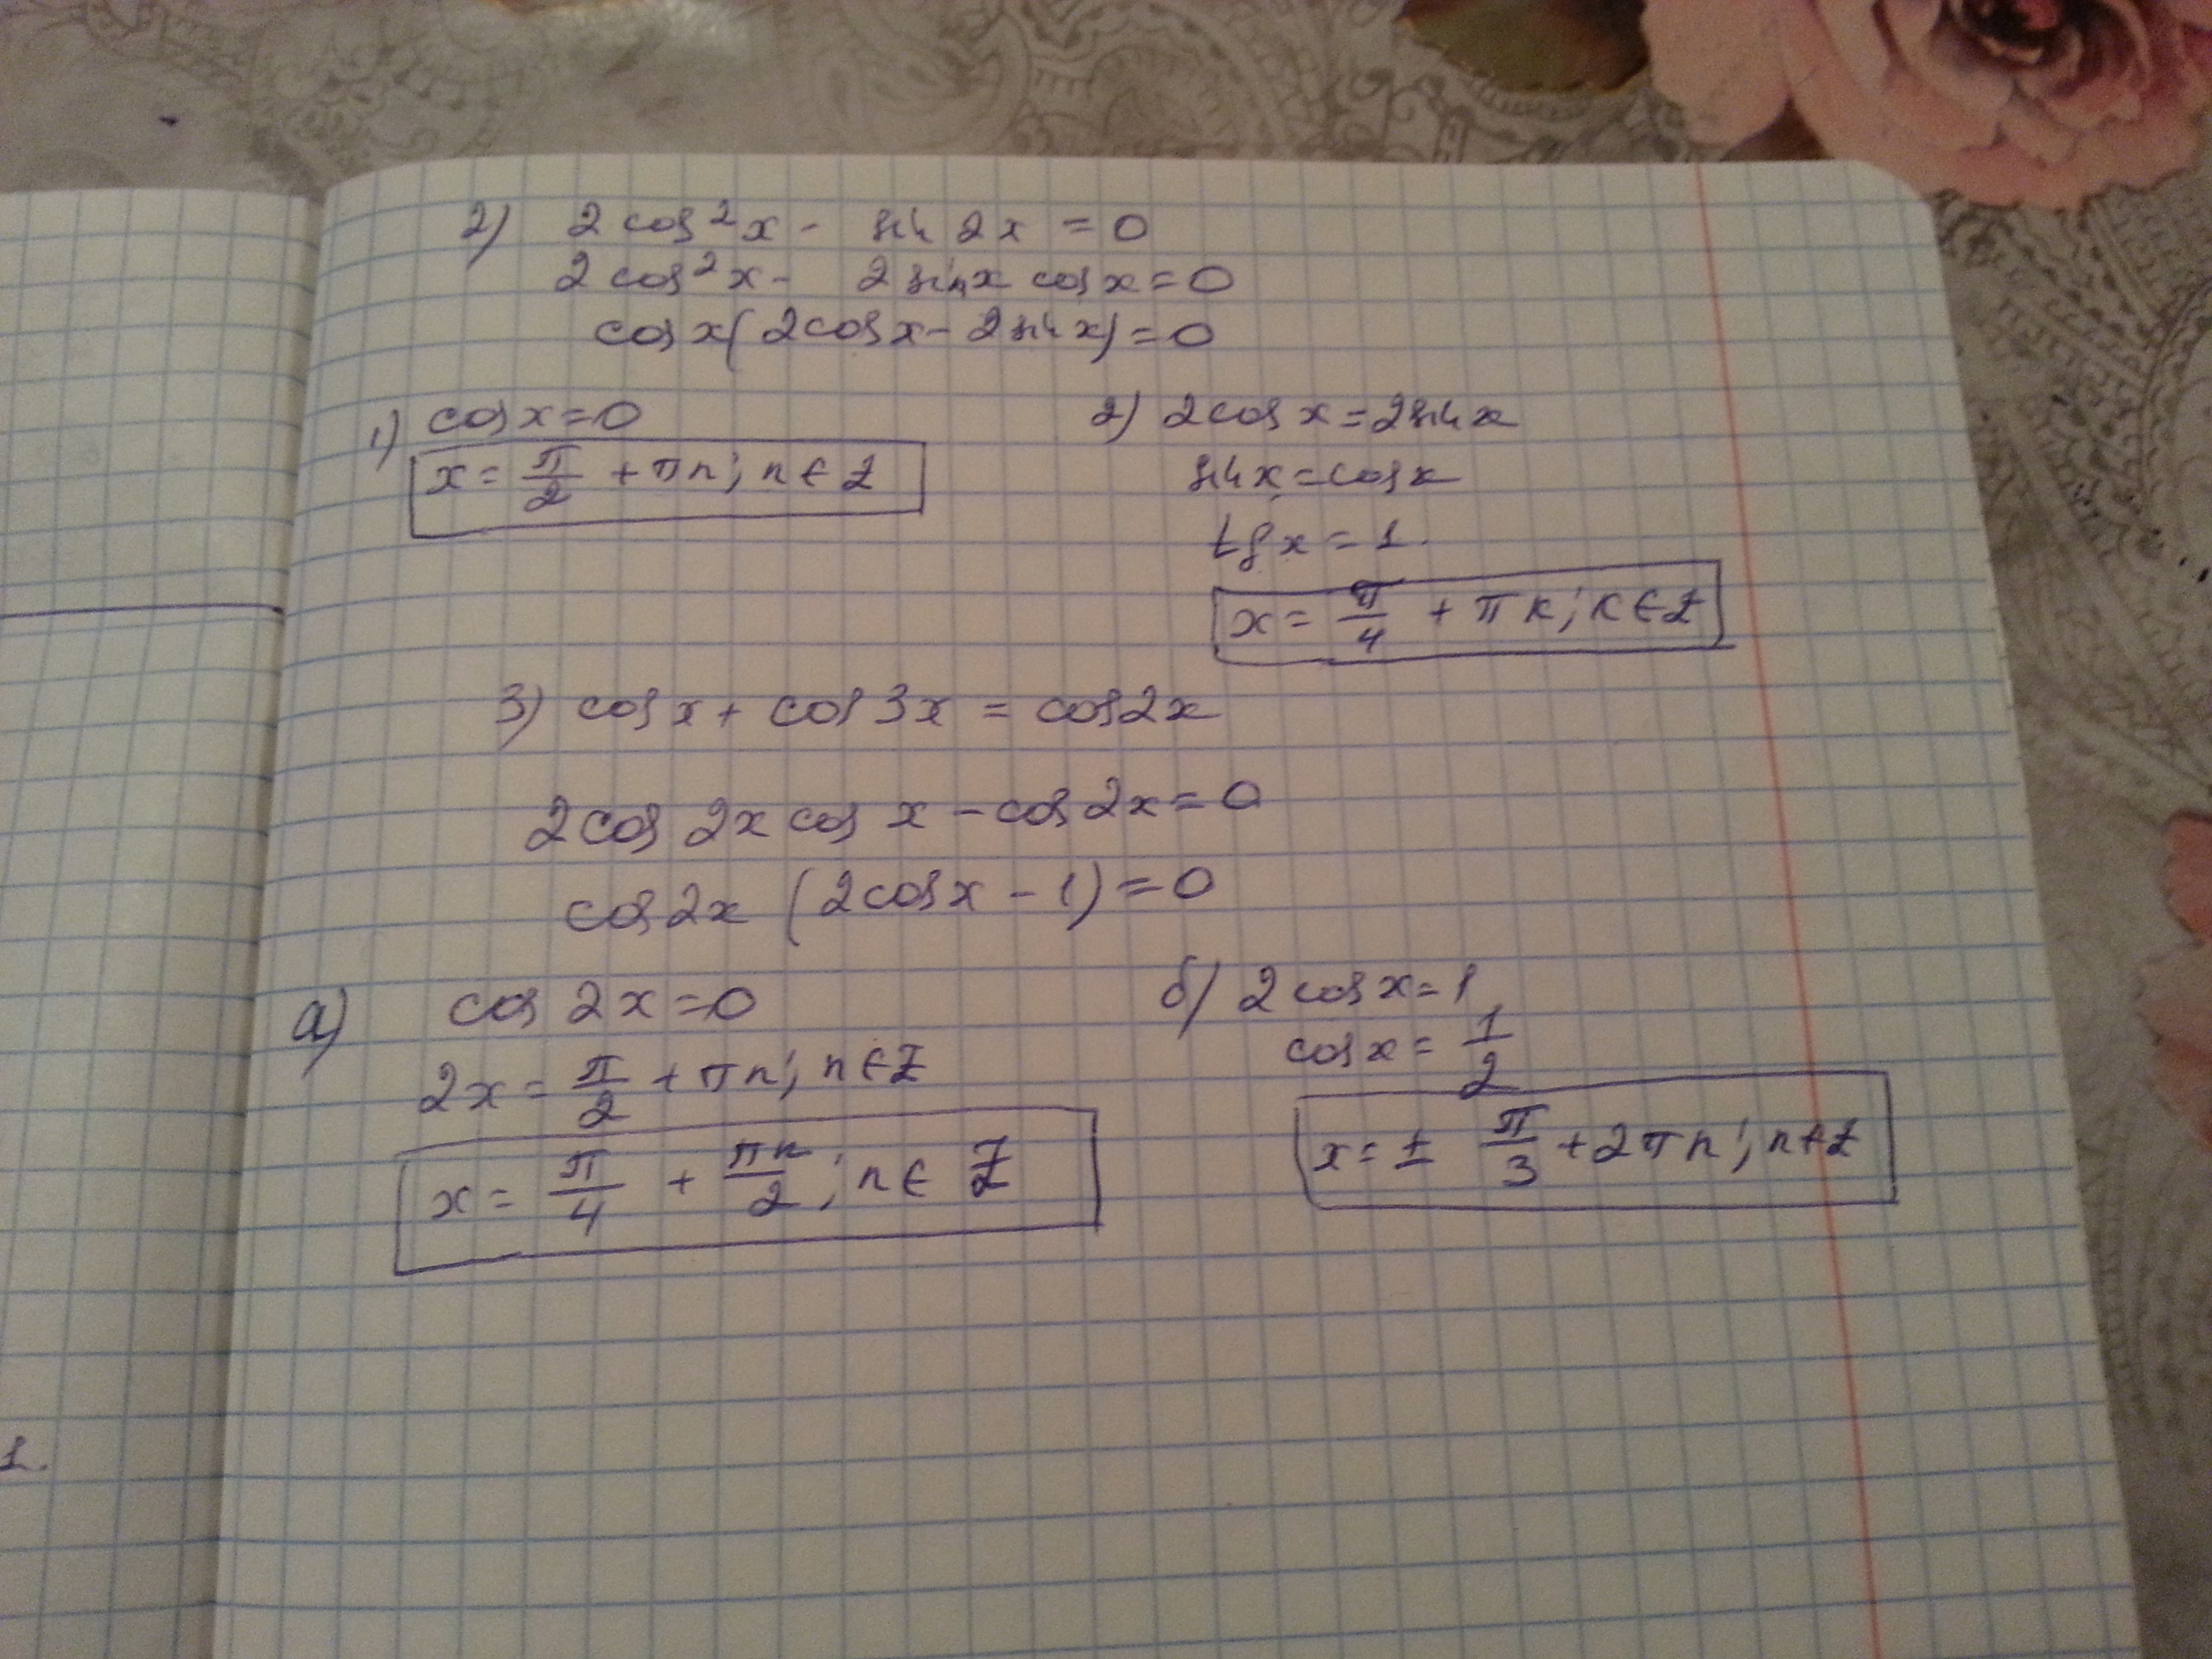 2) 2 cos²x - sin 2x = 0
2 cos²x - 2 sinx cosx = 0
cosx(2cosx - 2 sinx) = 0
1) cosx = 0
x = π/2 + πn; n ∈ Z
2) 2cosx = 2sinx
sinx = cosx
tgx = 1.
x = π/4 + πk; k ∈ Z
3) cosx + cos3x = cos2x
2cos 2x cos x - cos 2x = 0
cos2x (2cosx - 1) = 0
а) cos 2x = 0
2x = π/2 + πn; n ∈ Z
x = π/4 + πn/2; n ∈ Z
б) 2 cosx = 1
cosx = 1/2
x = ± π/3 + 2πn; n ∈ Z
1.